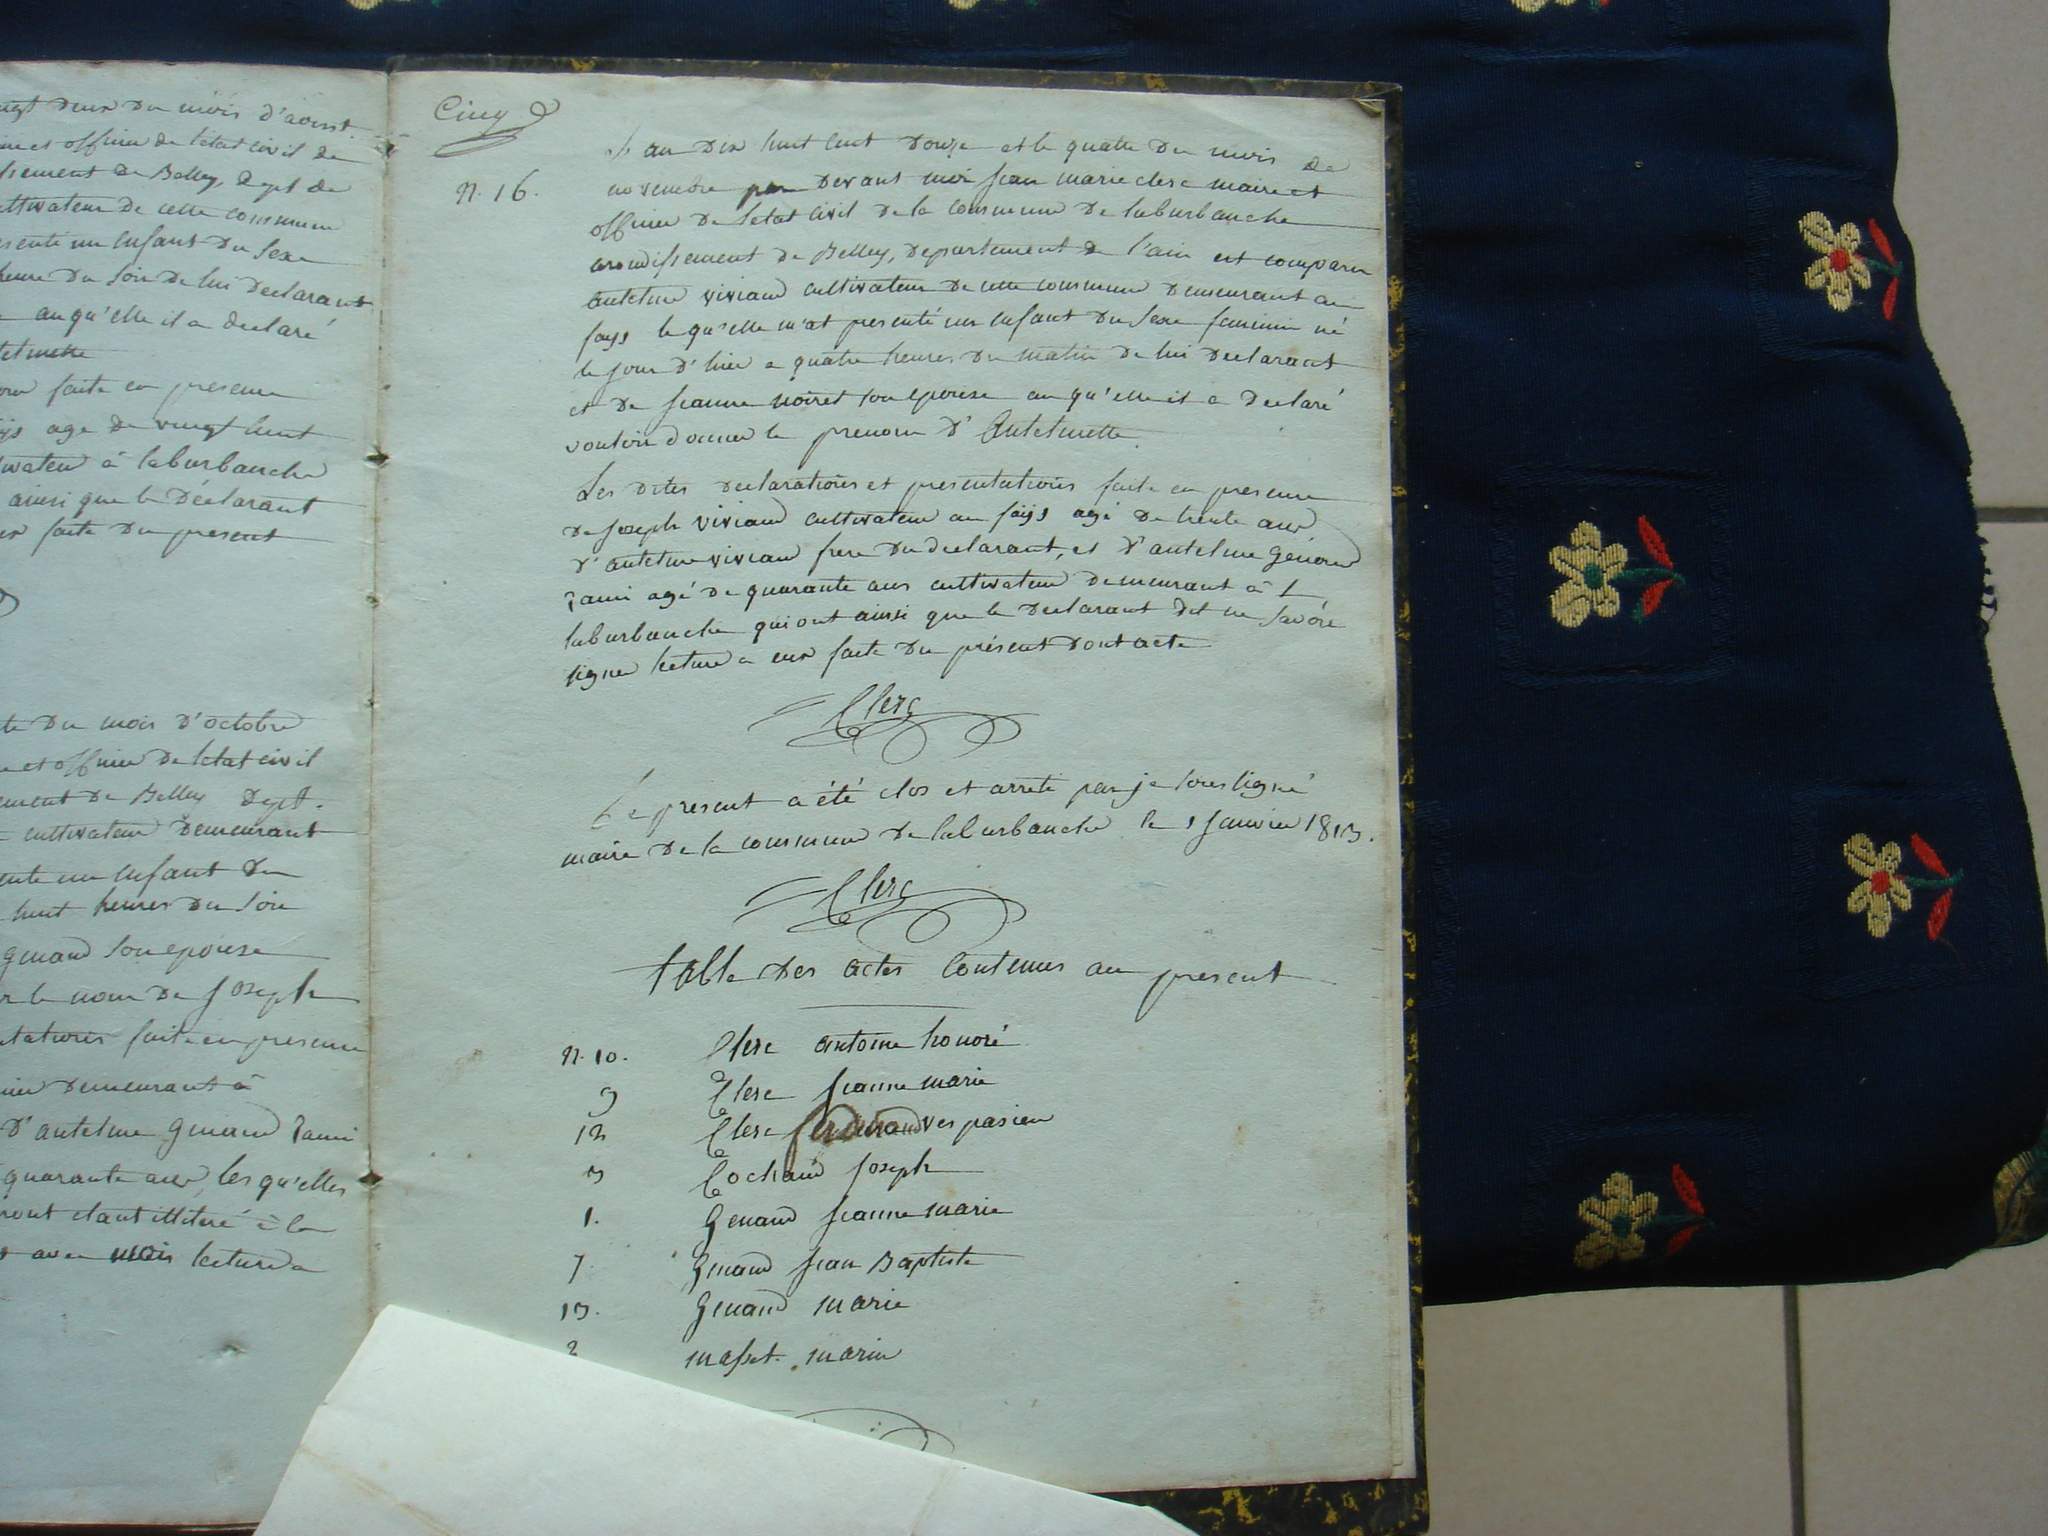 vingt deux du mois d'aoust
officier de letat civil de
de Belley, Dept de
cultivateur de cette commune
un enfant du sexe
heure du soir de lui declarant
auqu'elle il a declaré
faite en presence
age de vingt huit
à laburbanche
ainsi que le déclarant
faite du present
du mois d'octobre
et officier de letat civil
de Belley Dept.
cultivateur demeurant
un enfant du
huit heures du soir
genand son epouse
le nom de joseph
faite en presence
demeurant à
d'antelme genand
quarante ans, les qu'elles
illiteré à la
avec mois lecture a
Cinq
N. 16.
L'an dix huit cent douze et le quatre du mois de
novembre par devant moi jean marie clerc maire et
officier de letat civil de la commune de laburbanche
arondissement de Belley, departement de l'ain est comparu
antelme viviand cultivateur de cette commune demeurant au
fays le qu'elle m'at presenté un enfant du sexe feminin né
le jour d'hier a quatre heures du matin de lui declarant
et de jeanne noiret son epouse auqu'elle il a declaré
vouloir donner le prenom d'Antelmette
Les dites declarations et presentations faite en presence
de joseph viviand cultivateur au fays agé de trente ans
d'antelme viviand frere du declarant, et d'antelme genand
agé de quarante ans cultivateur demeurant à
laburbanche qui ont ainsi que le declarant dit ne savoir
signer lecture a eux faite du présent dont acte
Clerc
Le present a été clos et arreté par je sousigné
maire de la commune de laburbanche le 1 janvier 1813.
Clerc
table des actes Contenus au present
N. 10. Clerc antoine honoré
9 Clerc jeanne marie
12 Clerc ferdinand vespasien
3 Cochand joseph
1. Genand jeanne marie
7 Genand jean Baptiste
13. Genand marie
2 masset marie